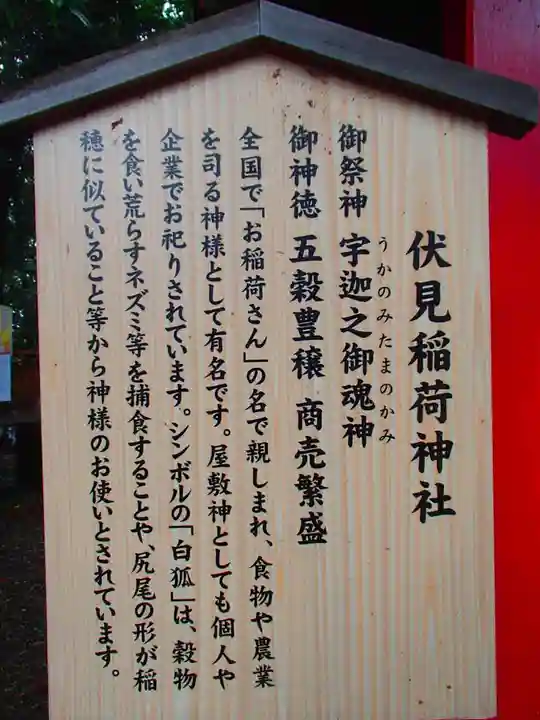 伏見稲荷神社
御祭神 宇迦之御魂神
うかのみたまのかみ
御神徳 五穀豊穣 商売繁盛
全国で「お稲荷さん」の名で親しまれ、食物や農業
を司る神様として有名です。屋敷神としても個人や
企業でお祀りされています。シンボルの「白狐」は、穀物
を食い荒らすネズミ等を捕食することや、尻尾の形が稲
穂に似ていること等から神様のお使いとされています。